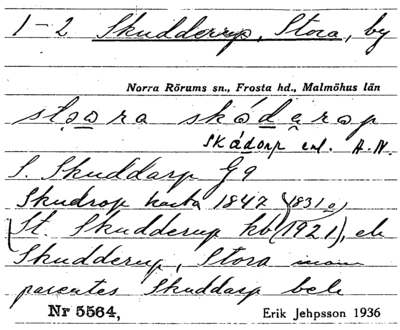 1-2 Skudderup, Stora, by
Norra Rörums sn., Frosta hd., Malmöhus län
stoara skådarop
skådorp enl. A.N.
S. Skuddarp Gg
Skudrop karta 1847 (1831 a)
(St. Skudderup kb (1921), ek
Skudderup, Stora mom
parentes Skuddarp bek
Nr 5564, Erik Jehpsson 1936